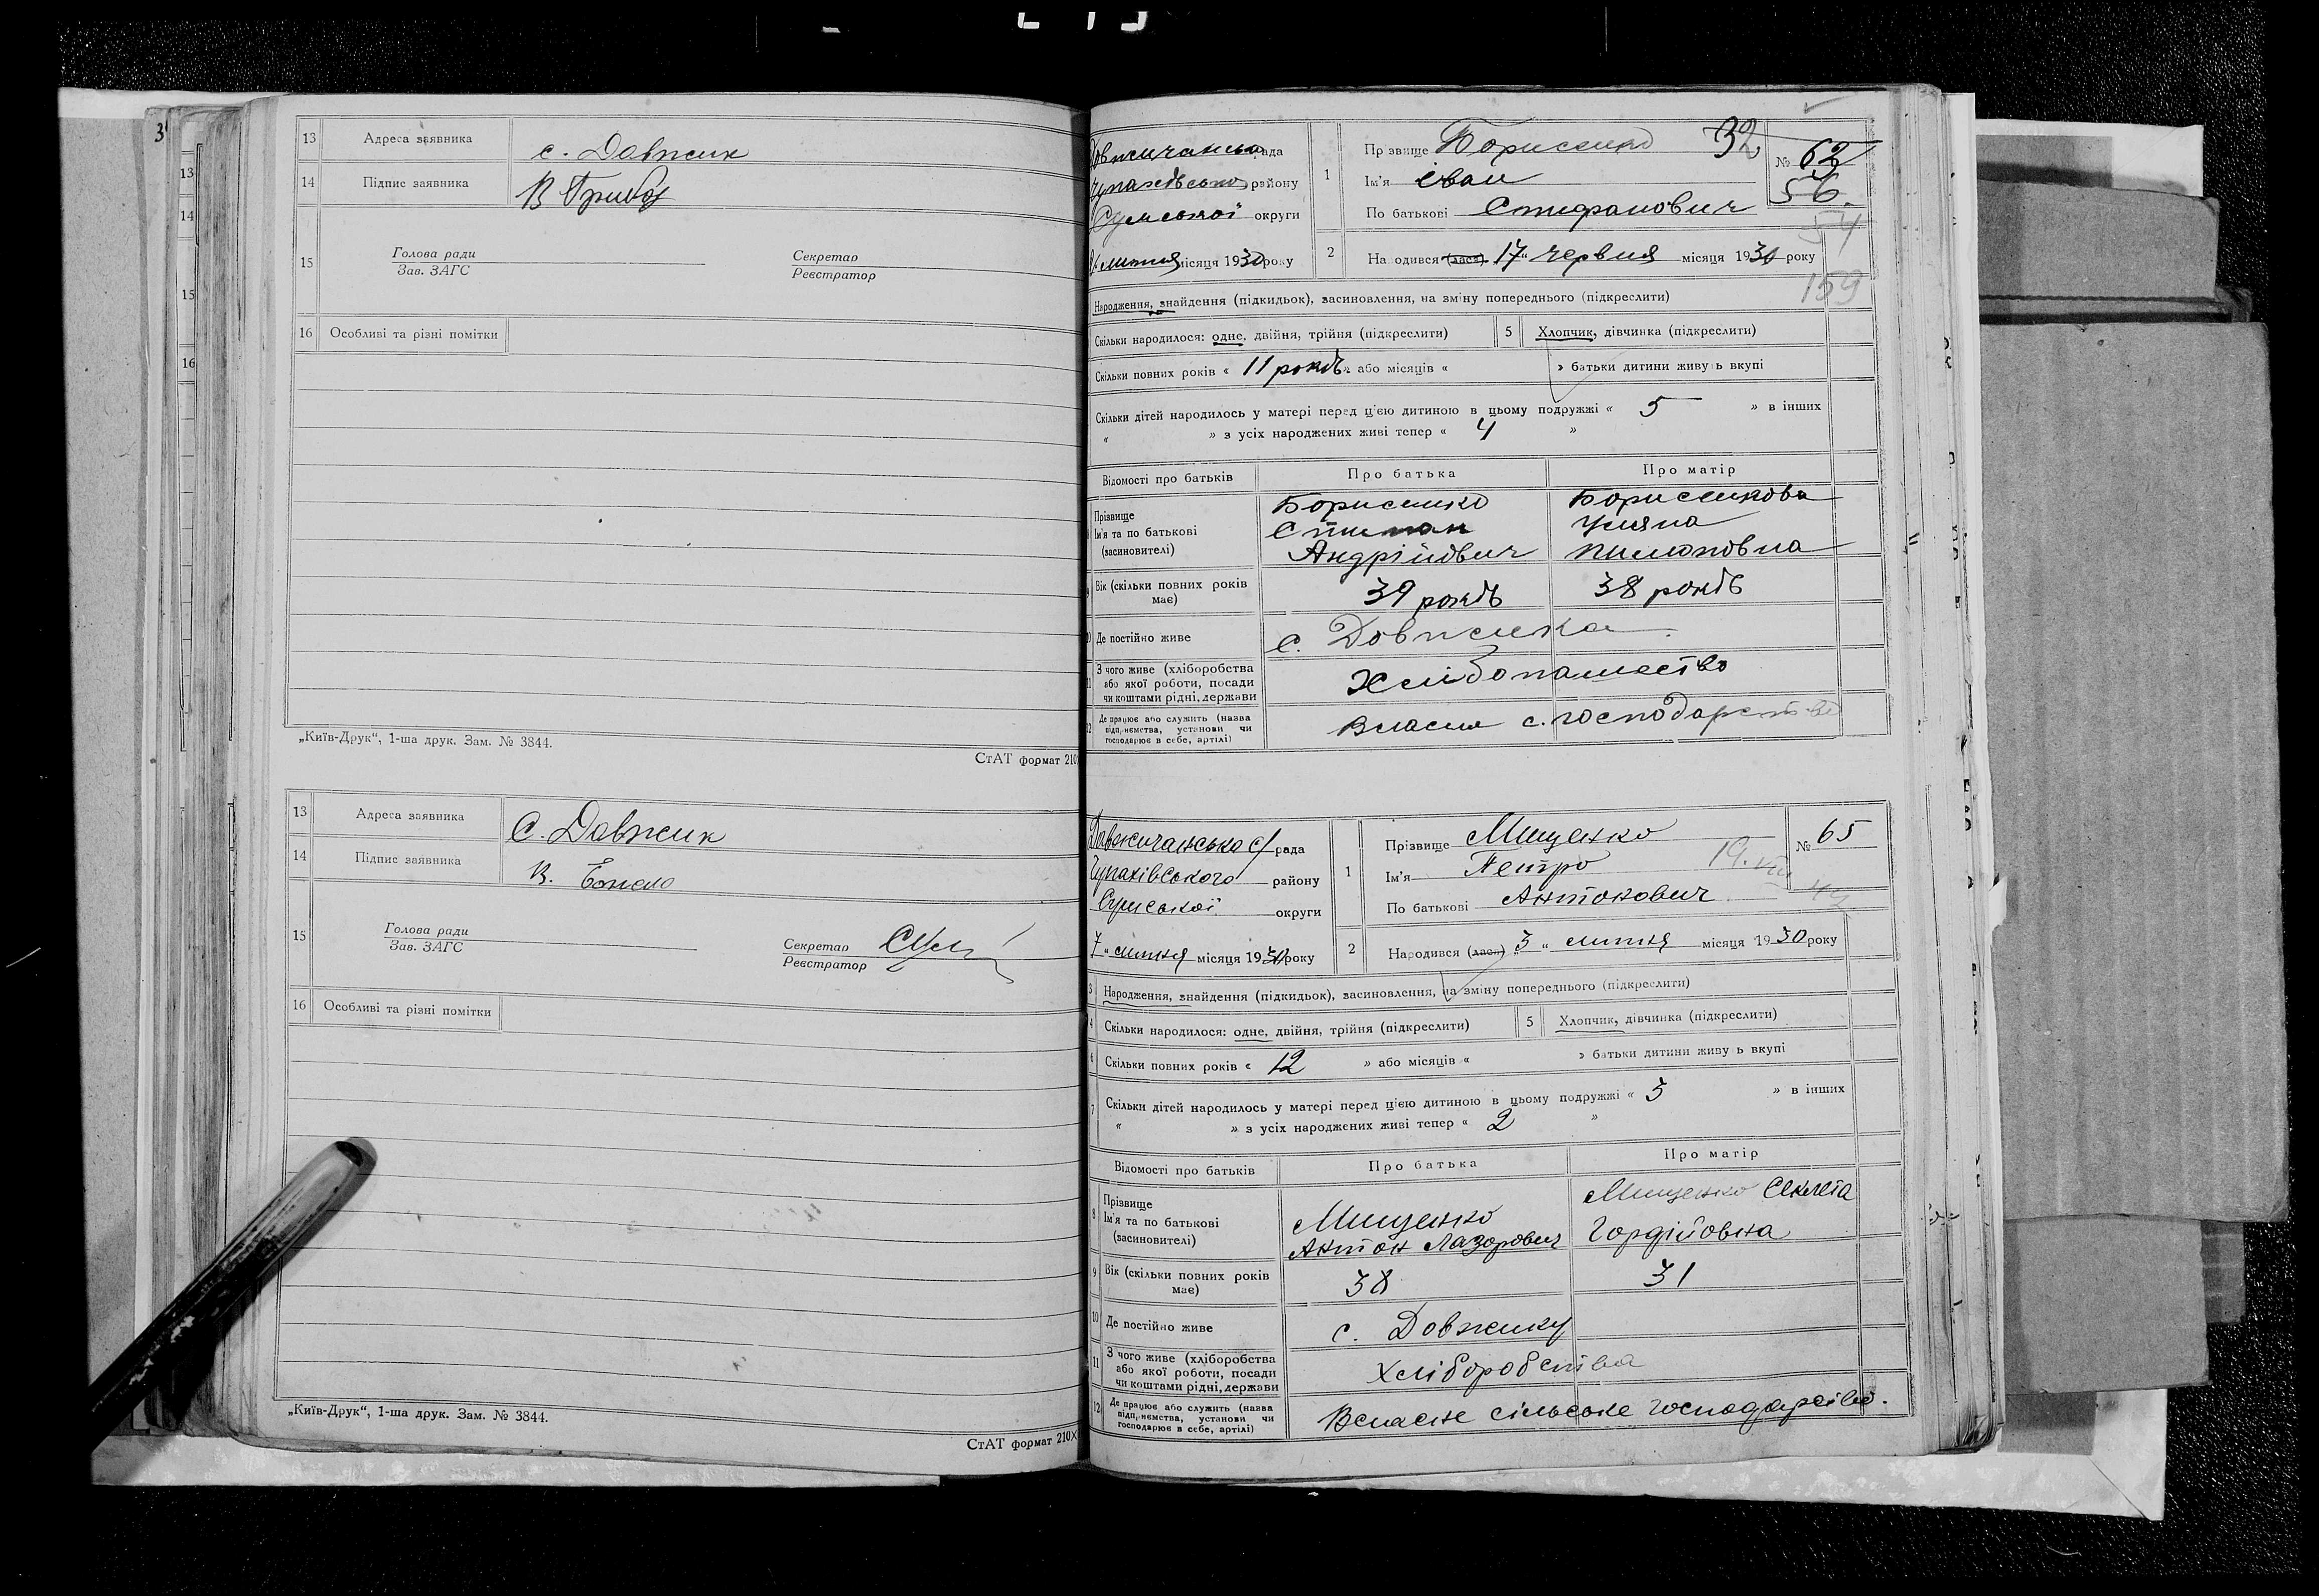 13 Адреса заявника с. Довжик
14 Підпис заявника В Грибу
15 Голова ради
Зав. ЗАГС
Секретар
Реєстратор
16 Особливі та різні помітки
„Київ-Друк“, 1-ша друк. Зам. № 3844.
СтАТ формат 210
13 Адреса заявника С. Довжик
14 Підпис заявника В.
15 Голова ради
Зав. ЗАГС
Секретар
Реєстратор
16 Особливі та різні помітки
„Київ-Друк“, 1-ша друк. Зам. № 3844.
СтАТ формат 210×
Довжичанська рада
Чупахівського району
Сумської округи
липня місяця 1930 року
1 Прізвище Борисенко 32
Ім'я Іван
По батькові Стифанович
№ 62
56.
54
159
2 Народився (лася) „17“ червня місяця 1930 року
Народження, знайдення (підкидьок), засиновлення, на зміну попереднього (підкреслити)
Скільки народилося: одне, двійня, трійня (підкреслити) 5 Хлопчик, дівчинка (підкреслити)
Скільки повних років « 11 років » або місяців « » батьки дитини живуть вкупі
Скільки дітей народилось у матері перед цією дитиною в цьому подружжі « 5 » в інших
« » з усіх народжених живі тепер « 4 »
Відомості про батьків Про батька Про матір
Прізвище
Ім'я та по батькові
(засиновителі)
Борисенко
Степан
Андрійович
Борисенкова
Уляна
Пилиповна
Вік (скільки повних років має) 39 років 38 років
Де постійно живе с. Довжика
З чого живе (хліборобства або якої роботи, посади чи коштами рідні, держави Хлібопашество
Де працює або служить (назва підприємства, установи чи господарює в себе, артілі) Власне с. господарство
Довжичанська с/рада
Чупахівського району
Сумської округи
7 „ липня місяця 1930 року
1 Прізвище Мищенко
Ім'я Петро
По батькові Антонович
№ 65
19. VIII
2 Народився (лася) „3“ липня місяця 1930 року
3 Народження, знайдення (підкидьок), засиновлення, на зміну попереднього (підкреслити)
4 Скільки народилося: одне, двійня, трійня (підкреслити) 5 Хлопчик, дівчинка (підкреслити)
6 Скільки повних років « 12 » або місяців « » батьки дитини живуть вкупі
7 Скільки дітей народилось у матері перед цією дитиною в цьому подружжі « 3 » в інших
« » з усіх народжених живі тепер « 2 »
Відомості про батьків Про батька Про матір
8 Прізвище
Ім'я та по батькові
(засиновителі)
Мищенко
Антон Лазорович
Мищенко Секлета
Гордійовна
9 Вік (скільки повних років має) 38 31
10 Де постійно живе с. Довжику
11 З чого живе (хліборобства або якої роботи, посади чи коштами рідні, держави Хліборобства
12 Де працює або служить (назва підприємства, установи чи господарює в себе, артілі) Власне сільське господарство.